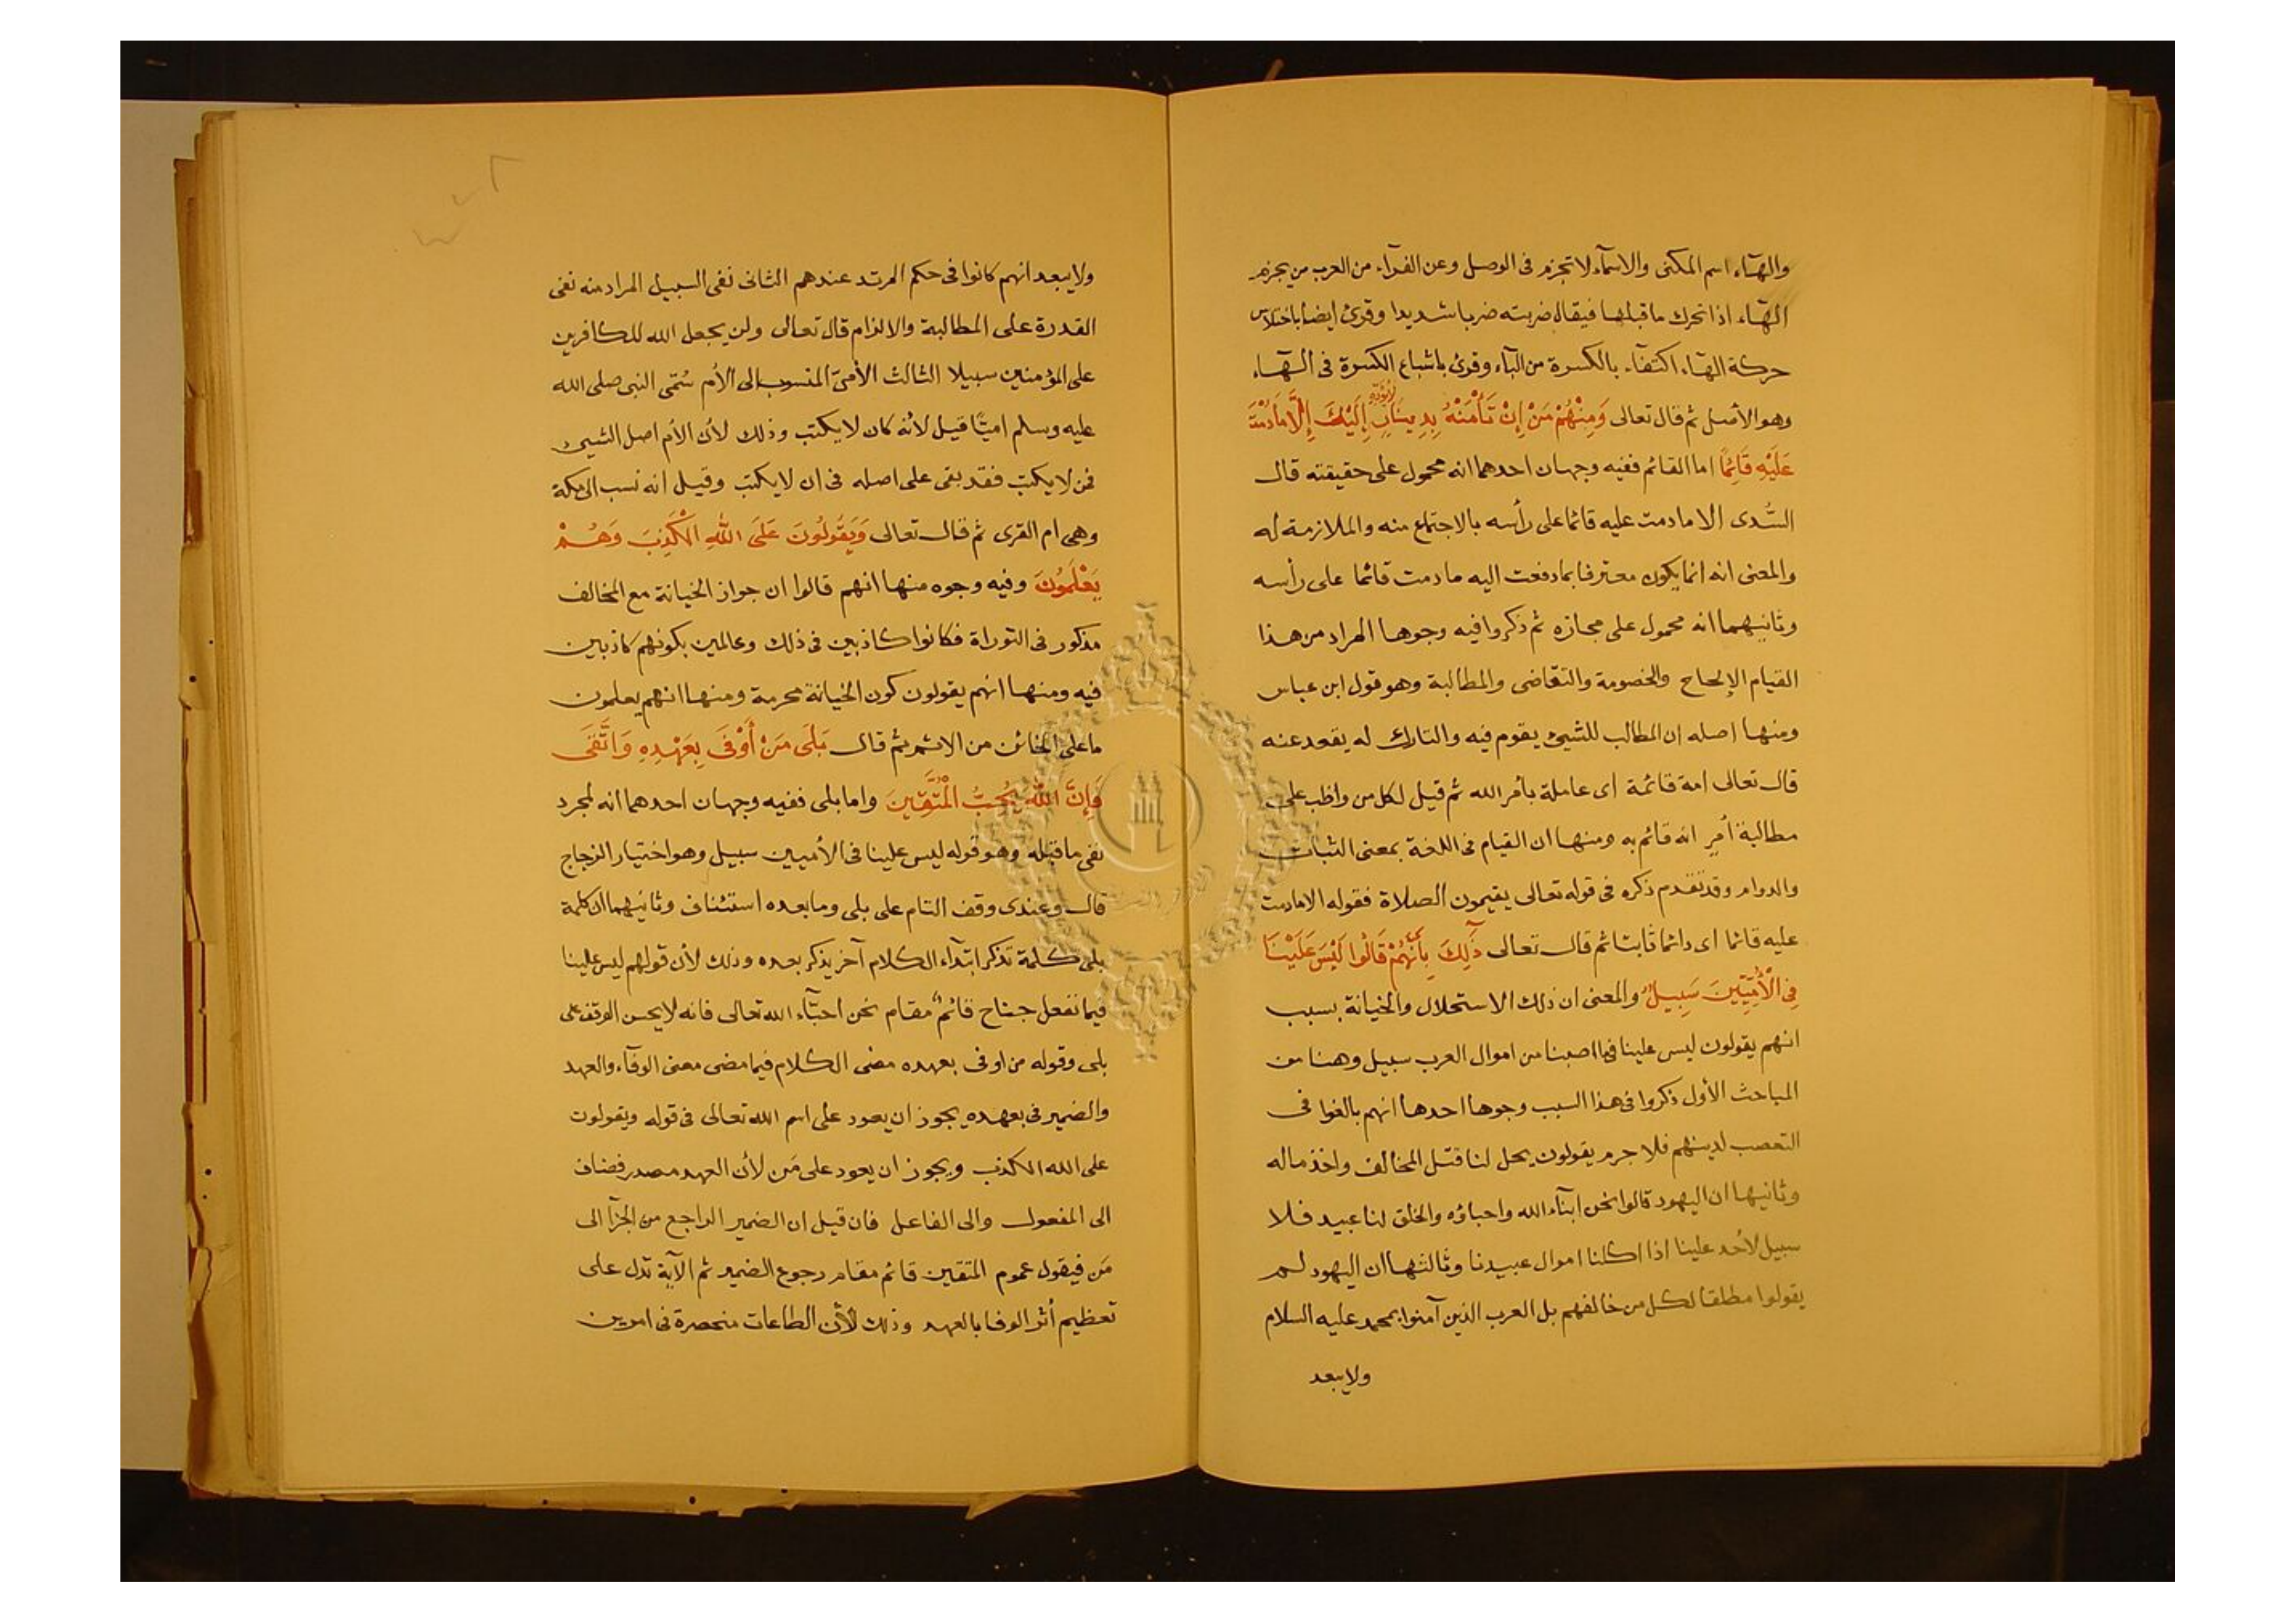 والهآء اسم المكنى والاسمآء لا تجزم فى الوصل وعن الفرآء من العرب من يجزم
الهآء اذا تحرك ما قبلها فيقال ضربته ضربا شديدا وقرئ ايضا باختلاس
حركة الهآء اكتفآء بالكسرة من اليآء وقرئ باشباع الكسرة فى الهآء
وهو الأصل ثم قال تعالى وَمِنْهُمْ مَنْ إِنْ تَأْمَنْهُ بِدِينَارٍ لَا يُؤَدِّهِ إِلَيْكَ إِلَّا مَا دُمْتَ
عَلَيْهِ قَائِمًا اما القائم ففيه وجهان احدهما انه محمول على حقيقته قال
السُّدى الا ما دمت عليه قائما على رأسه بالاجتماع منه والملازمة له
والمعنى انه انما يكون معترفا بما دفعت اليه ما دمت قائما على رأسه
وثانيهما انه محمول على مجازه ثم ذكروا فيه وجوها المراد من هذا
القيام الإلحاح والخصومة والتقاضى والمطالبة وهو قول ابن عباس
ومنها اصله ان المطالب للشيئ يقوم فيه والتارك له يقعد عنه
قال تعالى امة قائمة اى عاملة بأمر الله ثم قيل لكل من واظب على
مطالبة أمرٍ انه قائم به ومنها ان القيام فى اللغة بمعنى الثبات
والدوام وقد تقدم ذكره فى قوله تعالى يقيمون الصلاة فقوله الا ما دمت
عليه قائما اى دائما ثابتا ثم قال تعالى ذَلِكَ بِأَنَّهُمْ قَالُوا لَيْسَ عَلَيْنَا
فِى الْأُمِّيِّينَ سَبِيلٌ والمعنى ان ذلك الاستحلال والخيانة بسبب
انهم يقولون ليس علينا فيما اصبنا من اموال العرب سبيل وهنا من
المباحث الأول ذكروا فى هذا السبب وجوها احدها انهم بالغوا فى
التعصب لدينهم فلا جرم يقولون يحل لنا قتل المخالف واخذ ماله
وثانيها ان اليهود قالوا نحن ابنآء الله واحباؤه والخلق لنا عبيد فلا
سبيل لأحد علينا اذا اكلنا اموال عبيدنا وثالثها ان اليهود لم
يقولوا مطلقا لكل من خالفهم بل العرب الذين آمنوا بمحمد عليه السلام
ولا يبعد
ولا يبعد انهم كانوا فى حكم المرتد عندهم الثانى نفى السبيل المراد منه نفى
القدرة على المطالبة والالزام قال تعالى ولن يجعل الله للكافرين
على المؤمنين سبيلا الثالث الأمىّ المنسوب الى الأم سُمّى النبى صلى الله
عليه وسلم اميًّا قيل لأنه كان لا يكتب وذلك لأن الأم اصل الشيئ
فمن لا يكتب فقد بقى على اصله فى ان لا يكتب وقيل انه نسب الى مكة
وهى ام القرى ثم قال تعالى وَيَقُولُونَ عَلَى اللّٰهِ الْكَذِبَ وَهُمْ
يَعْلَمُونَ وفيه وجوه منها انهم قالوا ان جواز الخيانة مع المخالف
مذكور فى التوراة فكانوا كاذبين فى ذلك وعالمين بكونهم كاذبين
فيه ومنها انهم يقولون كون الخيانة محرمة ومنها انهم يعلمون
ما على الخائن من الاثم ثم قال بَلَى مَنْ أَوْفَى بِعَهْدِهِ وَاتَّقَى
فَإِنَّ اللّٰهَ يُحِبُّ الْمُتَّقِينَ واما بلى ففيه وجهان احدهما انه لمجرد
نفى ما قبله وهو قوله ليس علينا فى الأميين سبيل وهو اختيار الزجاج
قال وعندى وقف التام على بلى وما بعده استئناف وثانيهما ان كلمة
بلى كلمة تذكر ابتدآء الكلام آخر يذكر بعده وذلك لأن قولهم ليس علينا
فيما نفعل جناح قائمٌ مقام نحن احبّآء الله تعالى فانه لا يحسن الوقف على
بلى وقوله من اوفى بعهده مضى الكلام فيما مضى معنى الوفآء والعهد
والضمير فى بعهده يجوز ان يعود على اسم الله تعالى فى قوله ويقولون
على الله الكذب ويجوز ان يعود على مَن لأن العهد مصدر فضاف
الى المفعول والى الفاعل فان قيل ان الضمير الراجع من الجزآ الى
مَن فيقول عموم المتقين قائم مقام رجوع الضمير ثم الآية تدل على
تعظيم أثر الوفا بالعهد وذلك لأن الطاعات منحصرة فى امرين